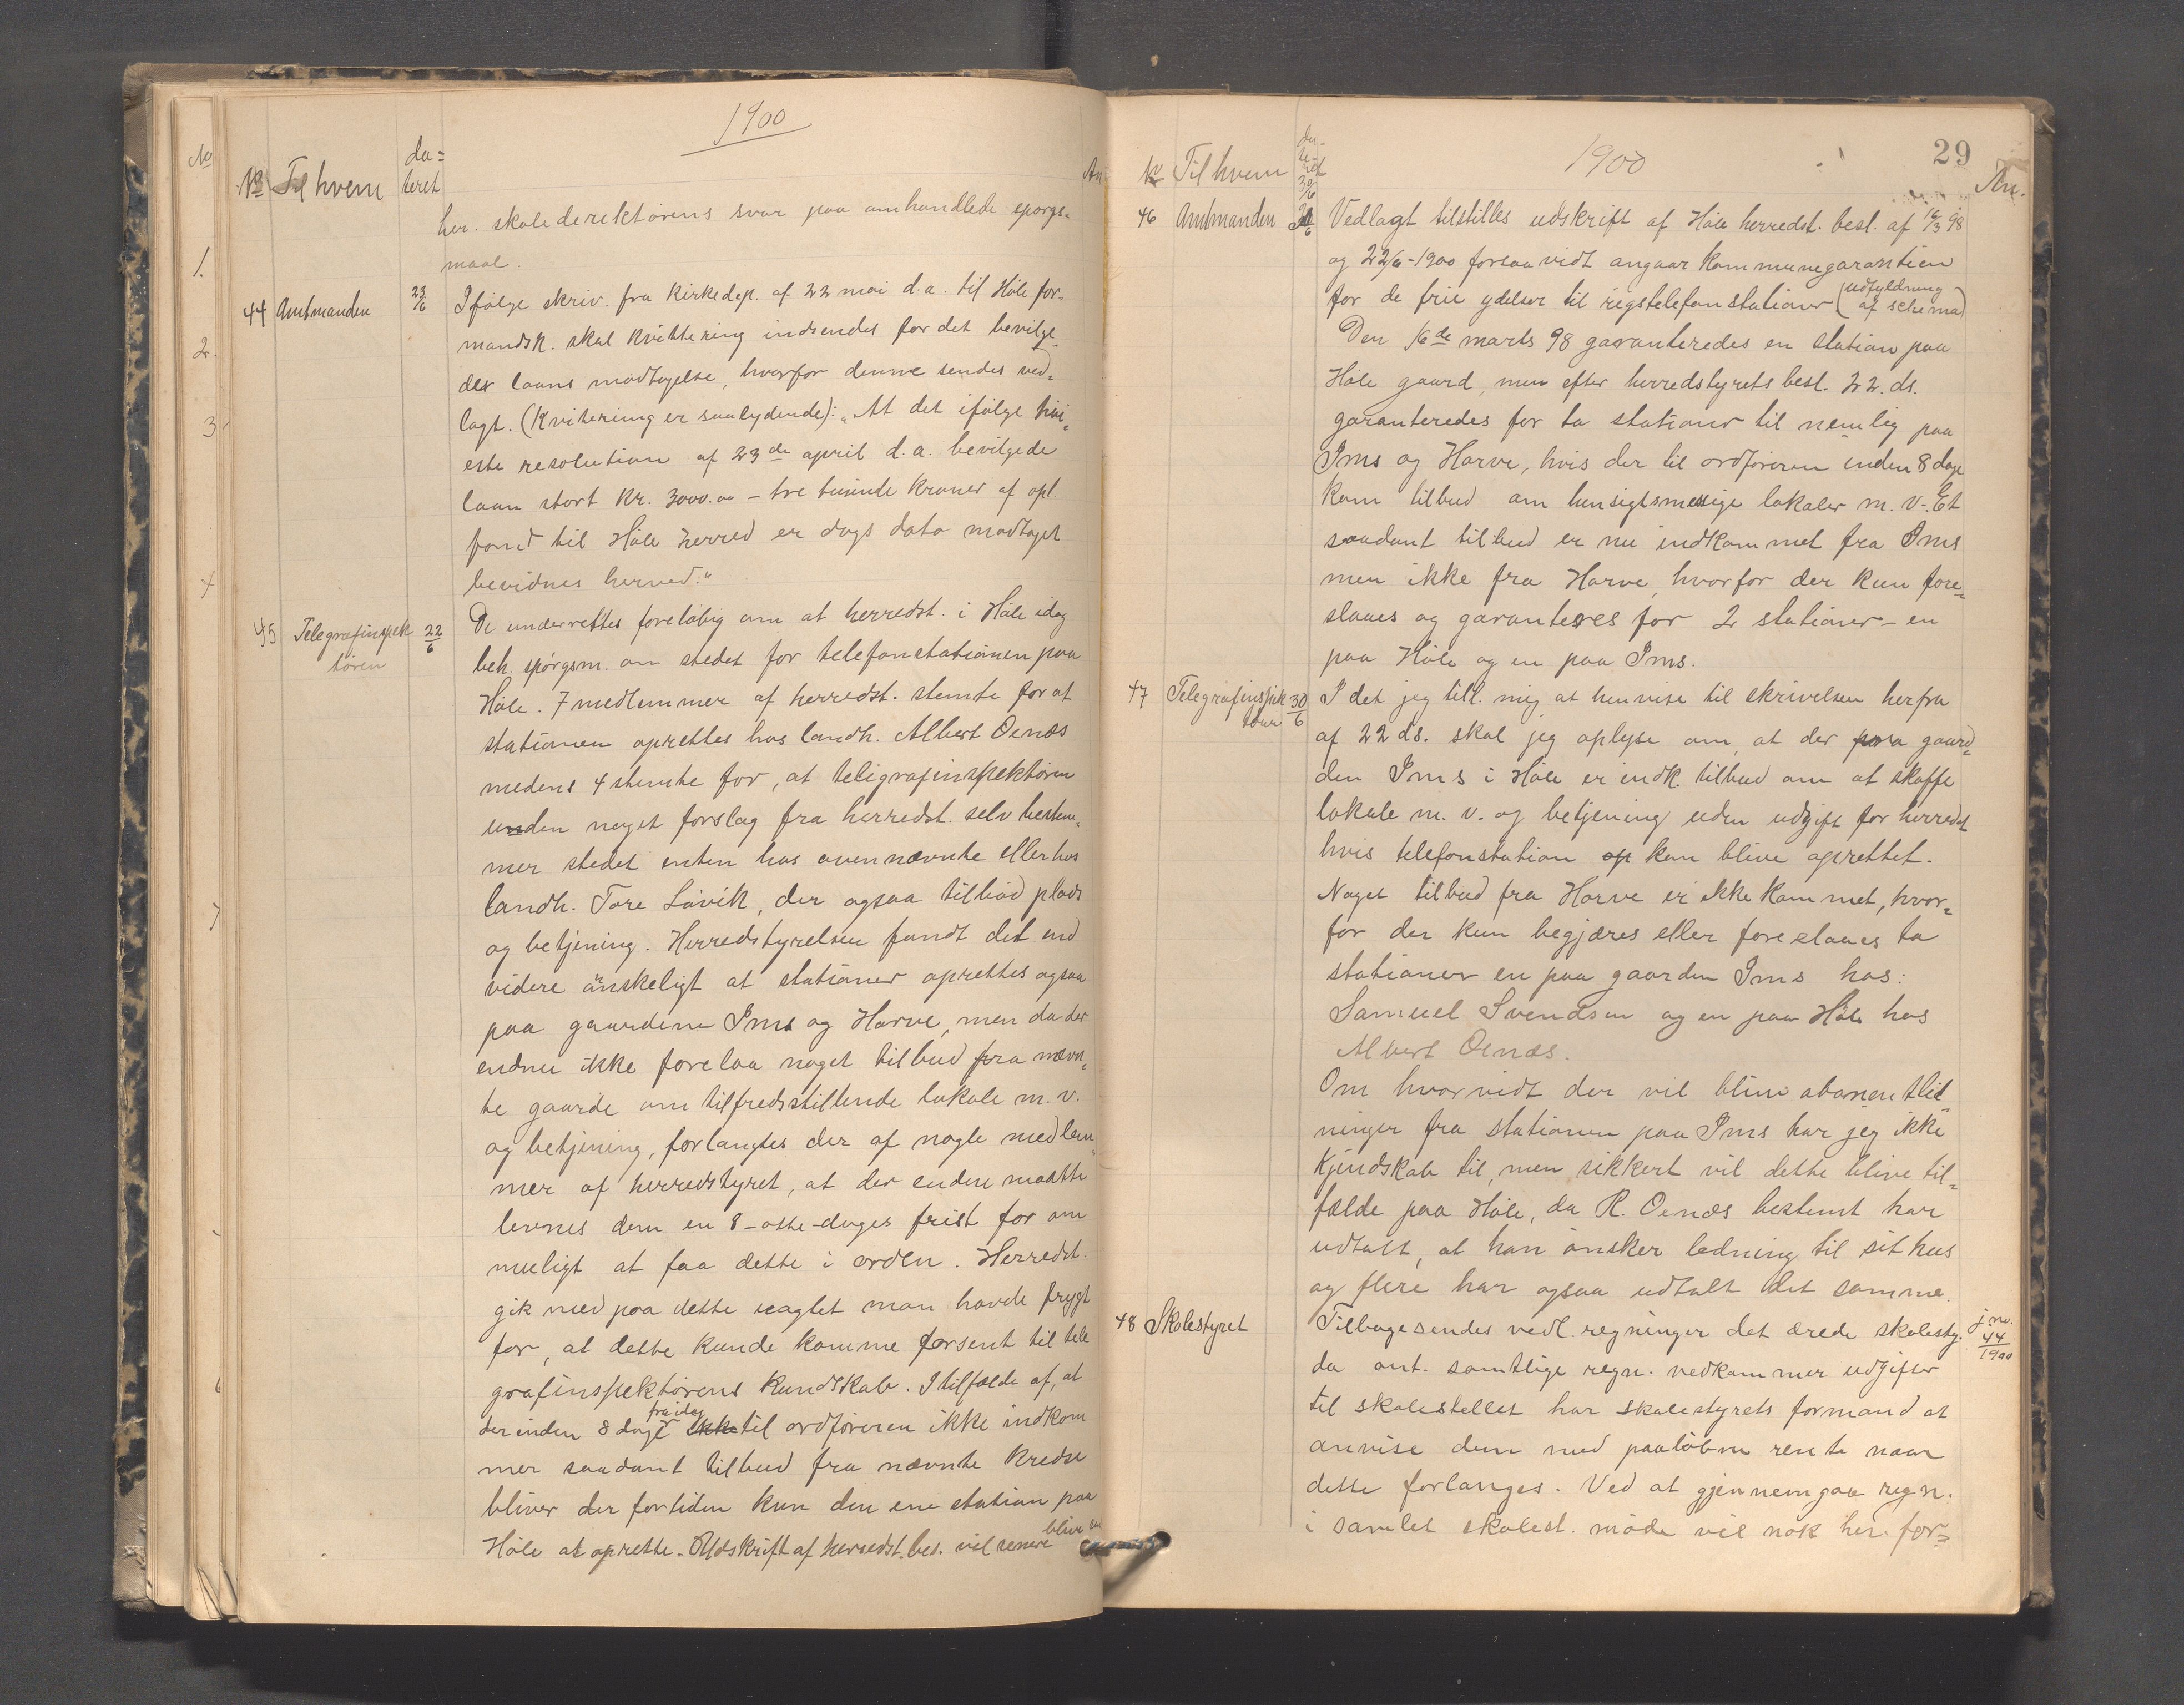 1900
No Til hvem da= teret An
her. skoledirektørens svar paa omhandlede spørgs=
maal.
44 Amtmanden 23/6 Ifølge skriv. fra Kirkedep. af 22 mai d.a. til Høle for=
mandsk. skal kvittering indsendes for det bevilge=
des laans modtagelse, hvorfor denne sendes ved=
lagt. (Kvitering er saalydende): „At det ifølge høi=
este resolution af 23de april d.a. bevilgede
laan stort Kr. 3000.00 – tre tusinde kroner af opl.
fond til Høle herred er dags dato modtaget
bevidnes herved."
45 Telegrafinspek 22/6 De underrettes foreløbig om at herredst. i Høle idag
tøren
beh. spørgsm. om stedet for telefonstationen paa
Høle. 7 medlemmer af herredst. stemte for at
stationen oprettes hos landh. Albert Oenæs
medens 4 stemte for, at teligrafinspektøren
unden noget forslag fra herredst. selv bestem=
mer stedet enten hos ovennævnte eller hos
landh. Tore Løvik, der ogsaa tilbød plads
og betjening. Herredstyrelsen fandt det end
videre ønskeligt at stationer oprettes ogsaa
paa gaardene Ims og Horve, men da der
endnu ikke forelaa noget tilbud fra nævn=
te gaarde om tilfredsstillende lokale m.v.
og betjening, forlangtes der af nogle medlem=
mer af herredstyret, at der endnu maatte
levnes dem en 8-otte-dages frist for om
muligt at faa dette i orden. Herredst.
gik med paa dette uagtet man havde frygt
for, at dette kunde komme forsent til tele
grafinspektørens kundskab. I tilfælde af, at
der inden 8 dage fra idag ikke til ordføreren ikke indkom
mer saadant tilbud fra nævnte kredse
bliver der fortiden kun den ene station paa
Høle at oprette. Udskrift af herredst. bes. vil senere blive
29
1900
No Til hvem da- te- ret An.
30/6
46 Amtmanden Vedlagt tilstilles udskrift af Høle herredst. besl. af 16/3 98
og 22/6-1900 forsaavidt angaar kommunegarantien
for de frie ydelser til rigstelefonstationer (udfyldning af schema)
Den 16de marts 98 garanteredes en station paa
Høle gaard, men efter herredstyrets besl. 22. ds.
garanteredes for to stationer til nemlig paa
Ims og Horve, hvis der til ordføreren inden 8 dage
kom tilbud om hensigtsmessige lokaler m.v. Et
saadant tilbud er nu indkommet fra Ims
men ikke fra Horve, hvorfor der kun fore=
slaaes og garanteres for 2 stationer – en
paa Høle og en paa Ims.
47 Telegrafinspek 30/6 I det jeg till. mig at henvise til skrivelsen herfra
tøren
af 22 ds. skal jeg oplyse om, at der paa gaar=
den Ims i Høle er indk. tilbud om at skaffe
lokale m.v. og betjening uden udgift for herredet
hvis telefonstation op kan blive oprettet.
Noget tilbud fra Horve er ikke kommet, hvor=
for der kun begjæres eller foreslaaes to
stationer en paa gaarden Ims hos:
Samuel Svendsen og en paa Høle hos
Albert Oenæs.
Om hvorvidt der vil blive abonentled=
ninger fra stationen paa Ims har jeg ikke
kjendskab til, men sikkert vil dette blive til=
fælde paa Høle, da R. Oenæs bestemt har
udtalt, at han ønsker ledning til sit hus
og flere har ogsaa udtalt det samme.
48 Skolestyret Tilbagesendes vedl. regninger det ærede skolesty. j.no. 44/1900
da ant. samtlige regn. vedkommer udgifter
til skolestellet har skolestyrets formand at
anvise dem med paaløben rente naar
dette forlanges. Ved at gjennemgaa regn.
i samlet skolest. møde vil nok her. for=